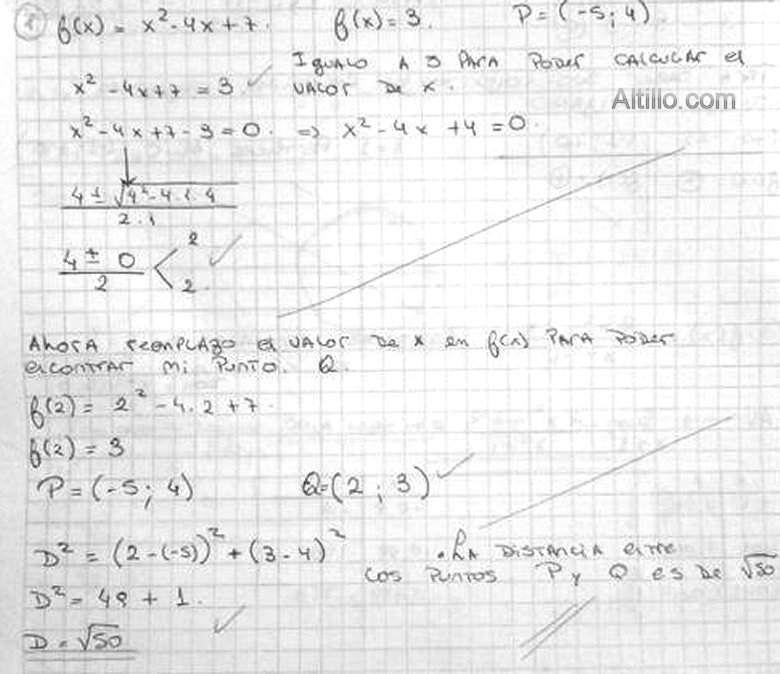 1) f(x) = x² - 4x + 7. f(x) = 3. P = (-5; 4)
x² - 4x + 7 = 3 IGUALO A 3 PARA PODER CALCULAR el VALOR DE X.
Altillo.com
x² - 4x + 7 - 3 = 0. => x² - 4x + 4 = 0.
4 ± √4² - 4 . 1 . 4
2 . 1
4 ± 0 2
2 2.
AHORA REEMPLAZO el VALOR De x en f(x) PARA PODER
eNCONTRAR Mi PUNTO. Q.
f(2) = 2² - 4.2 + 7.
f(2) = 3
P = (-5; 4) Q = (2; 3)
D² = (2 - (-5))² + (3 - 4)²
. LA DISTANCIA eNTRe
LOS PUNTOS P y Q es De √50
D² = 49 + 1.
D = √50